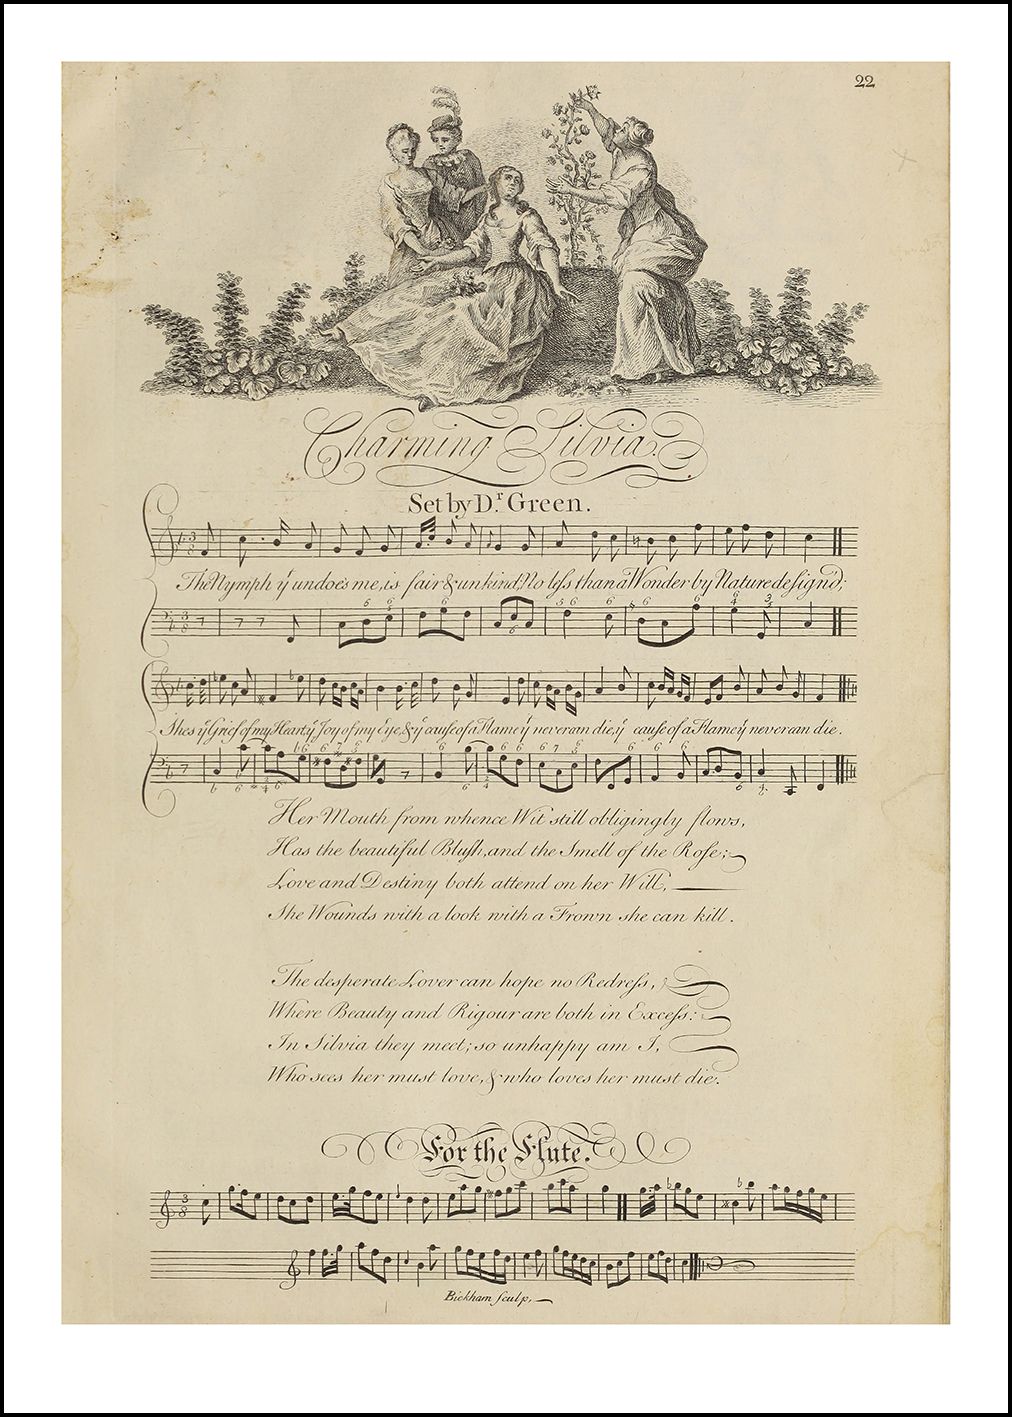 22
Charming Silvia.
Set by Dr. Green.
The Nymph yt undoes me, is fair & unkind; No leſs than a Wonder by Nature deſign'd;
She's ye Grief of my Heart, ye Joy of my Eye, & ye cauſe of a Flame yt never can die, ye cauſe of a Flame yt never can die.
Her Mouth from whence Wit still obligingly flows,
Has the beautiful Bluſh, and the Smell of the Roſe;
Love and Destiny both attend on her Will,
She Wounds with a look with a Frown she can kill.
The desperate Lover can hope no Redreſs,
Where Beauty and Rigour are both in Exceſs:
In Silvia they meet; so unhappy am I,
Who sees her must love, & who loves her must die.
For the Flute.
Bickham ſculp.